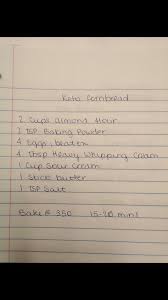 Keto Cornbread
2 Cups almond flour
2 TSP Baking Powder
4 Eggs, beaten
4 Tbsp Heavy Whipping Cream
1 Cup Sour Cream
1 Stick butter
1 TSP Salt
Bake @ 350 15-20 mins